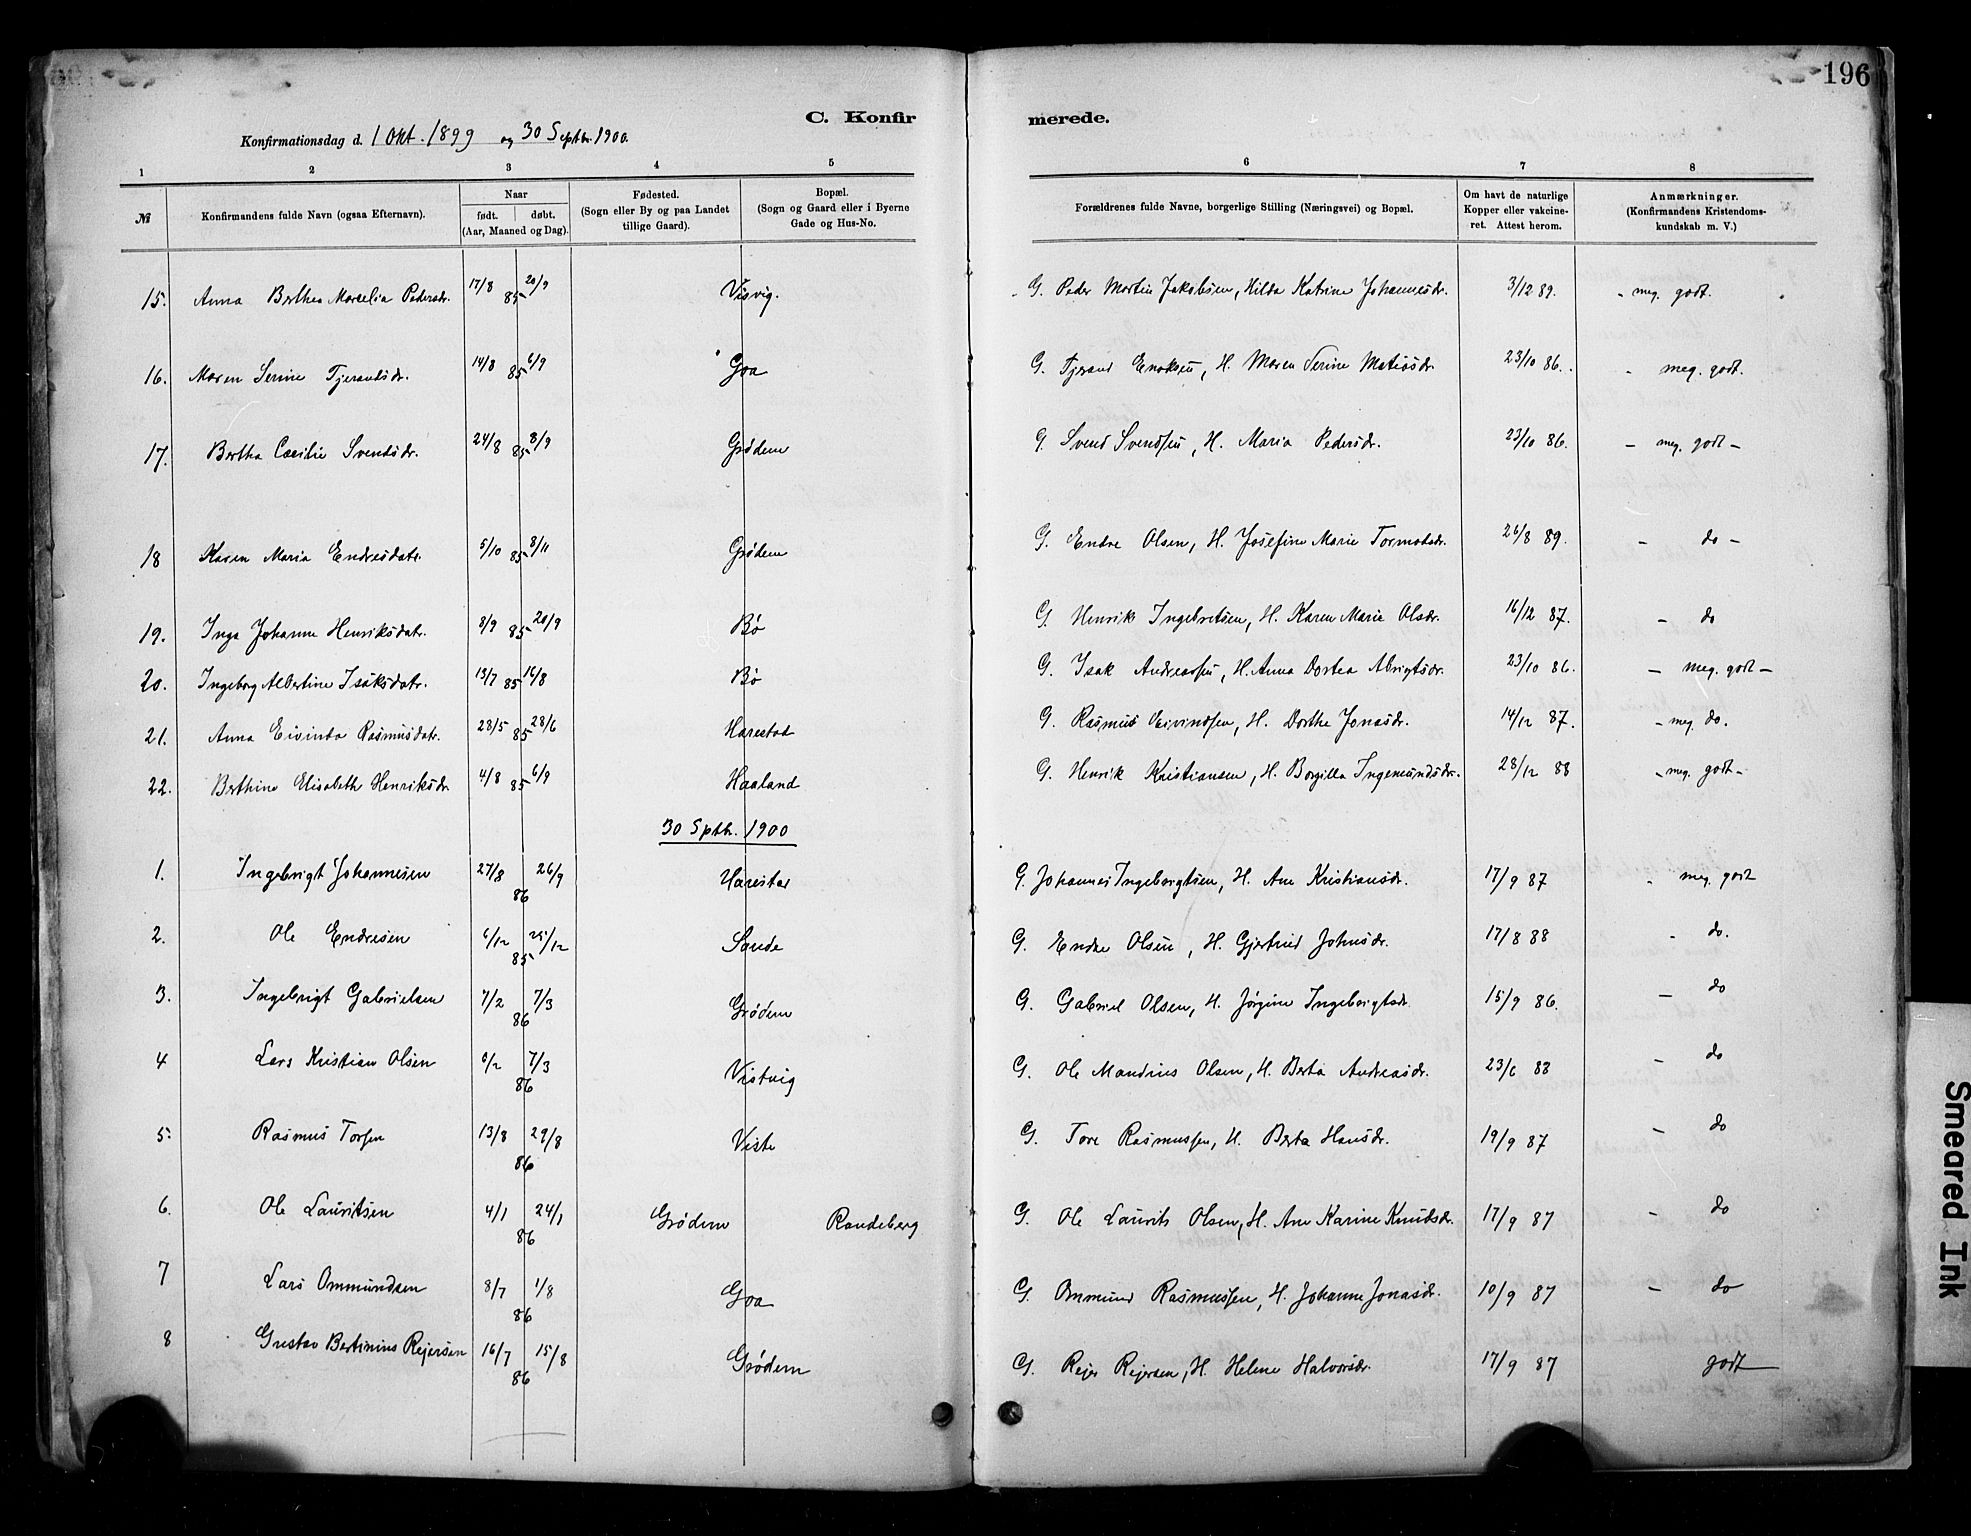 196
C. Konfirmerede.
Konfirmationsdag d. 1 Okt. 1899 og 30 Septbr. 1900.
1 2 3 4 5 6 7 8
№ Konfirmandens fulde Navn (ogsaa Efternavn). Naar født. døbt. (Aar, Maaned og Dag). Fødested. (Sogn eller By og paa Landet tillige Gaard). Bopæl. (Sogn og Gaard eller i Byerne Gade og Hus-No. Forældrenes fulde Navne, borgerlige Stilling (Næringsvei) og Bopæl. Om havt de naturlige Kopper eller vakcineret. Attest herom. Anmærkninger. (Konfirmandens Kristendomskundskab m. V.)
15. Anna Berthea Marselia Pedersdr. 17/8 85 20/9 Visvig. G. Peder Martin Jakobsen, Hilda Katrine Johannesdr. 3/12 89. - meg. godt.
16. Maren Serine Tjerandsdr. 14/8 85 6/9 Goa G. Tjerand Enoksen, H. Maren Serine Matiasdr. 23/10 86. - meg. godt.
17. Bertha Cecilie Svendsdr. 24/8 85 8/9 Grødem G. Svend Svendsen, H. Maria Pedersdr. 23/10 86. - meg. godt -
18 Karen Maria Endresdatr. 5/10 85 8/11 Grødem G. Endre Olsen, H. Josefine Marie Tormodsdr. 26/8 89. - do -
19. Inga Johanne Henriksdatr. 8/9 85 20/9 Bø G. Henrik Ingebretsen, H. Karen Marie Olsdr. 16/12 87. - do
20. Ingeborg Albertine Isaksdatr. 13/7 85 16/8 Bø G. Isak Andreassen, H. Anna Dortea Abrigtsdr. 23/10 86. - meg. godt -
21. Anna Eivinda Rasmusdatr. 28/5 85 28/6 Harestad G. Rasmus Eivindsen, H. Dorthe Jonasdr. 14/12 87. - meg. do.
22. Berthine Elisabeth Henriksdr. 4/8 85 6/9 Haaland G. Henrik Kristiansen, H. Borgilla Ingemundsdr. 28/12 88 - meg. godt -
30 Sptbr. 1900
1. Ingebrigt Johannesen 27/8 86 26/9 Harestad G. Johannes Ingebrigtsen, H. Ane Kristiansdr. 17/9 87 - meg. godt
2. Ole Endresen 6/12 85 25/12 Sande G. Endre Olsen, H. Gjertrud Johnsdr. 17/8 88 - do.
3. Ingebrigt Gabrielsen 7/2 86 7/3 Grødem G. Gabriel Olsen, H. Jørgine Ingebrigtsdr. 15/9 86. - do
4 Lars Kristian Olsen 6/2 86 7/3 Vistvig G. Ole Mandius Olsen, H. Berta Andreasdr. 23/6 88 - do
5. Rasmus Torsen 13/8 86 29/8 Viste G. Tore Rasmussen, H. Berta Hansdr. 19/9 87 - do
6. Ole Lauritsen 4/1 86 24/1 Grødem Randeberg G. Ole Laurits Olsen, H. Ane Karine Knudsdr. 17/9 87 - do
7 Lars Ommundsen 8/7 86 1/8 Goa G. Ommund Rasmussen, H. Johanne Jonasdr. 10/9 87 - do
8 Gustav Bertinius Rejersen 16/7 86 15/8 Grødem G. Rejer Rejersen, H. Helene Halvorsdr. 17/9 87 godt
Smeared Ink